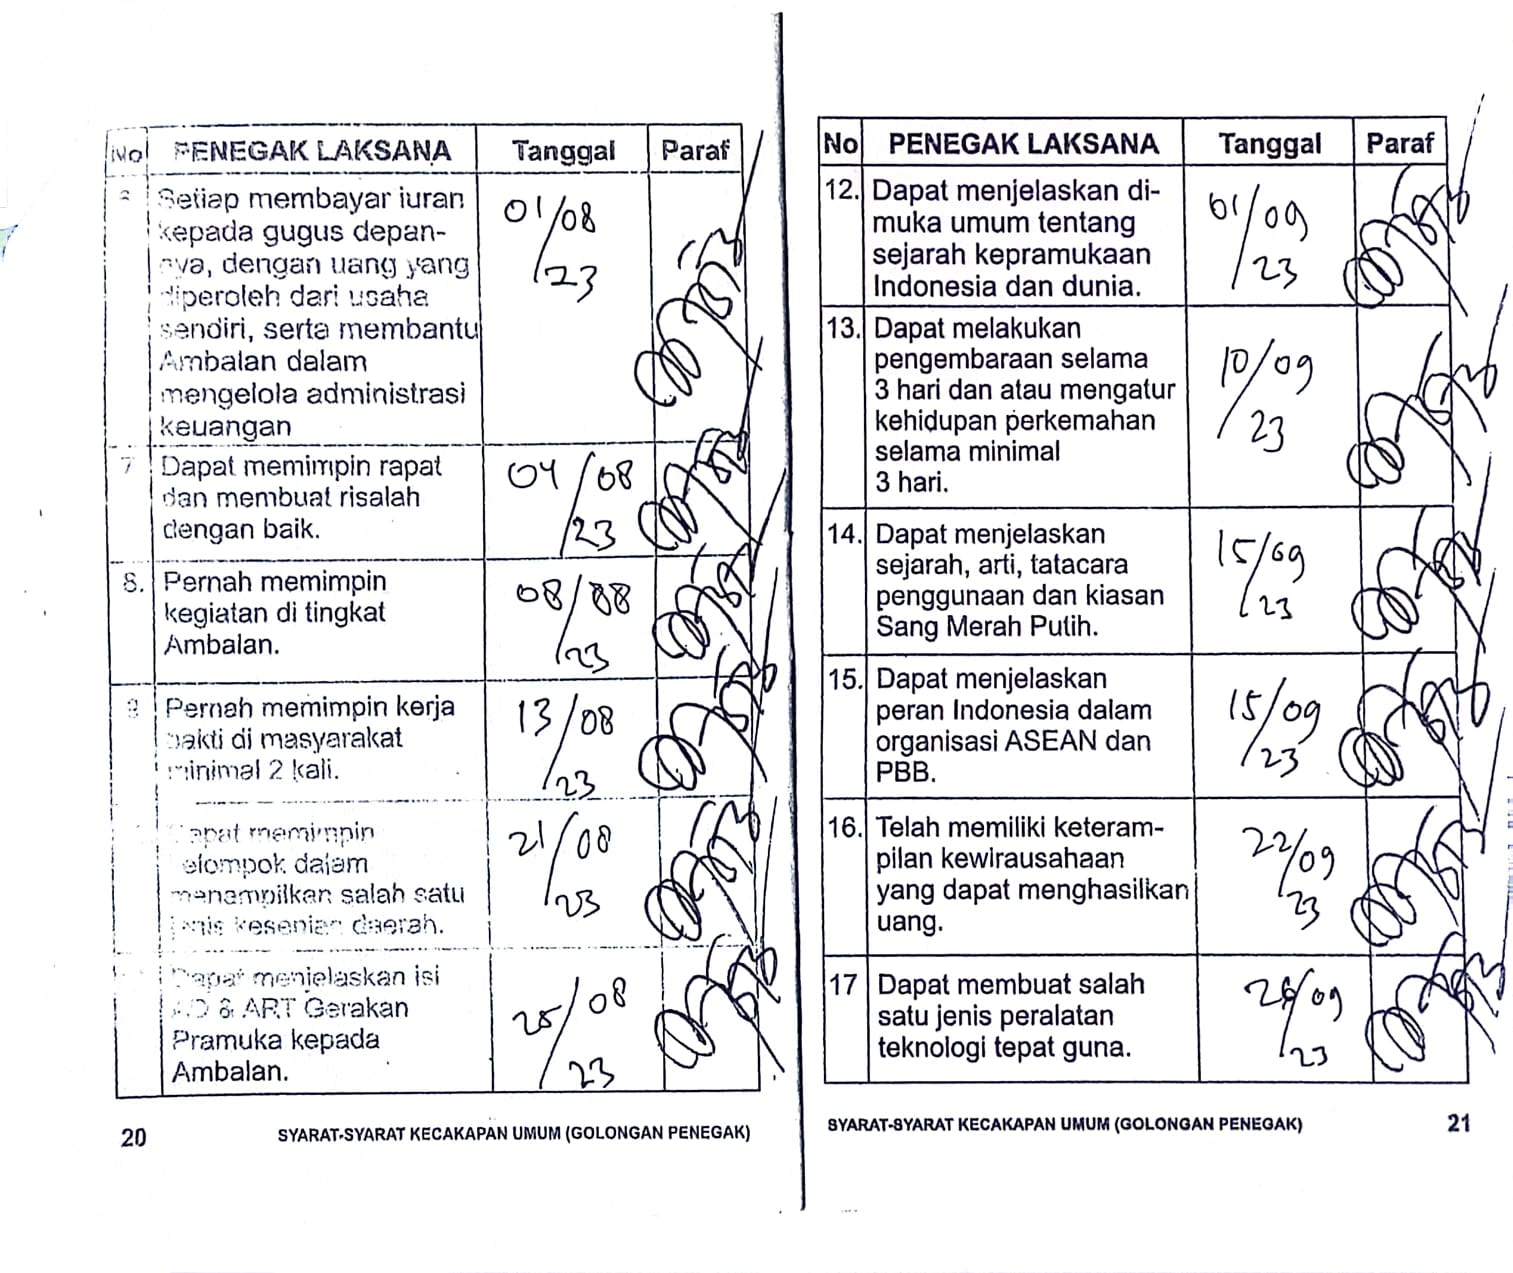 No PENEGAK LAKSANA Tanggal Paraf
Setiap membayar iuran
kepada gugus depan-
nya, dengan uang yang
diperoleh dari usaha
sendiri, serta membantu
Ambalan dalam
mengelola administrasi
keuangan
01/08
/23
7 Dapat memimpin rapat
dan membuat risalah
dengan baik.
04/08
/23
8. Pernah memimpin
kegiatan di tingkat
Ambalan.
08/08
/23
9 Pernah memimpin kerja
bakti di masyarakat
minimal 2 kali.
13/08
/23
Dapat memimpin
kelompok dalam
menampilkan salah satu
jenis kesenian daerah.
21/08
/23
Dapat menjelaskan isi
AD & ART Gerakan
Pramuka kepada
Ambalan.
25/08
/23
20 SYARAT-SYARAT KECAKAPAN UMUM (GOLONGAN PENEGAK)
No PENEGAK LAKSANA Tanggal Paraf
12. Dapat menjelaskan di-
muka umum tentang
sejarah kepramukaan
Indonesia dan dunia.
01/09
/23
13. Dapat melakukan
pengembaraan selama
3 hari dan atau mengatur
kehidupan perkemahan
selama minimal
3 hari.
10/09
/23
14. Dapat menjelaskan
sejarah, arti, tatacara
penggunaan dan kiasan
Sang Merah Putih.
15/09
/23
15. Dapat menjelaskan
peran Indonesia dalam
organisasi ASEAN dan
PBB.
15/09
/23
16. Telah memiliki keteram-
pilan kewirausahaan
yang dapat menghasilkan
uang.
22/09
/23
17 Dapat membuat salah
satu jenis peralatan
teknologi tepat guna.
26/09
/23
SYARAT-SYARAT KECAKAPAN UMUM (GOLONGAN PENEGAK) 21